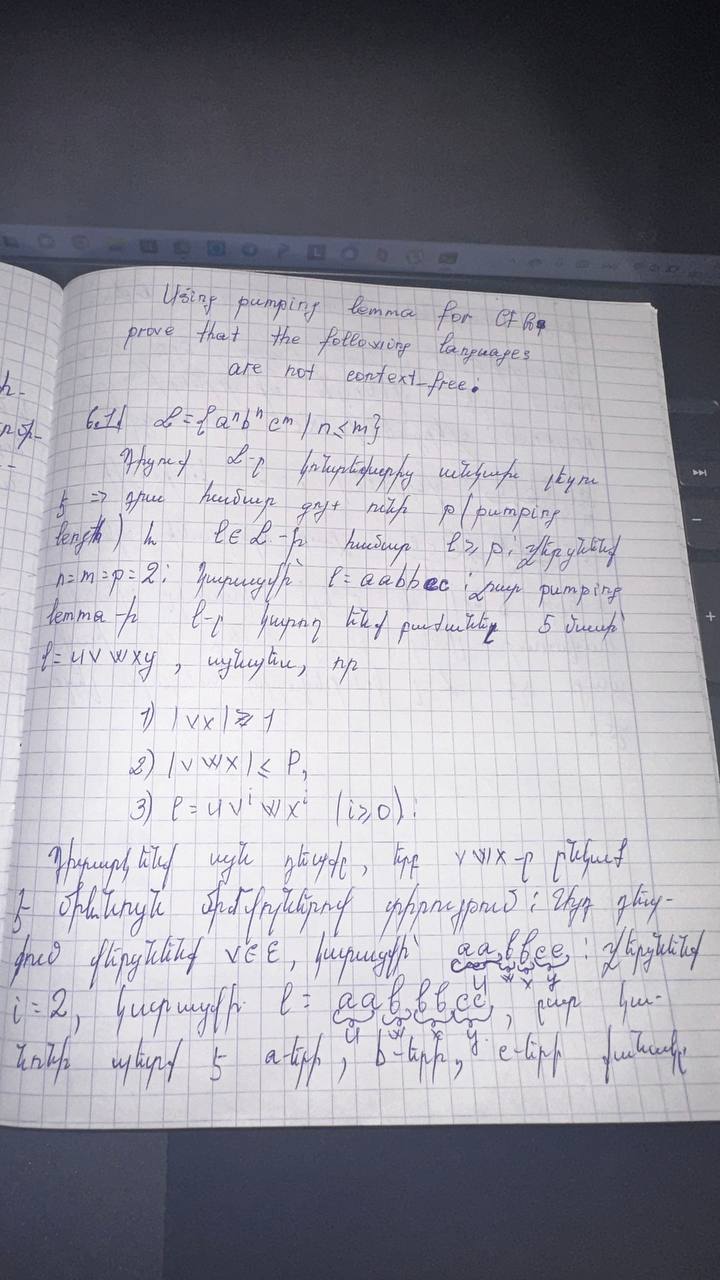 Using pumping lemma for CFLs
prove that the following languages
are not context-free:
6.1 L = {aⁿbⁿcᵐ | n ≤ m}
Դիցուք L-ը կոնտեքստից անկախ լեզու
է => դրա համար գոյ. ունի p (pumping
length) և l ∈ L -ի համար l ≥ p: Վերցնենք
n=m=p=2: կստացվի՝ l = aabbcc: Ըստ pumping
lemma-ի l-ը կարող ենք բաժանել 5 մասի՝
l = uvwxy, այնպես, որ
1) |vx| ≥ 1
2) |vwx| ≤ P,
3) l = uvⁱwxⁱ (i ≥ 0):
Դիտարկենք այն դեպքը, երբ vwx-ը ընկած
է միևնույն սիմվոլների տիրույթում: Այդ դեպ-
քում վերցնենք v ∈ ε, կստացվի՝ aabbcc: Վերցնենք
u w x y
i = 2, կստացվի l = aabbbcc, ըստ կա-
u w x y
նոնի պետք է a-երի, b-երի, c-երի քանակը